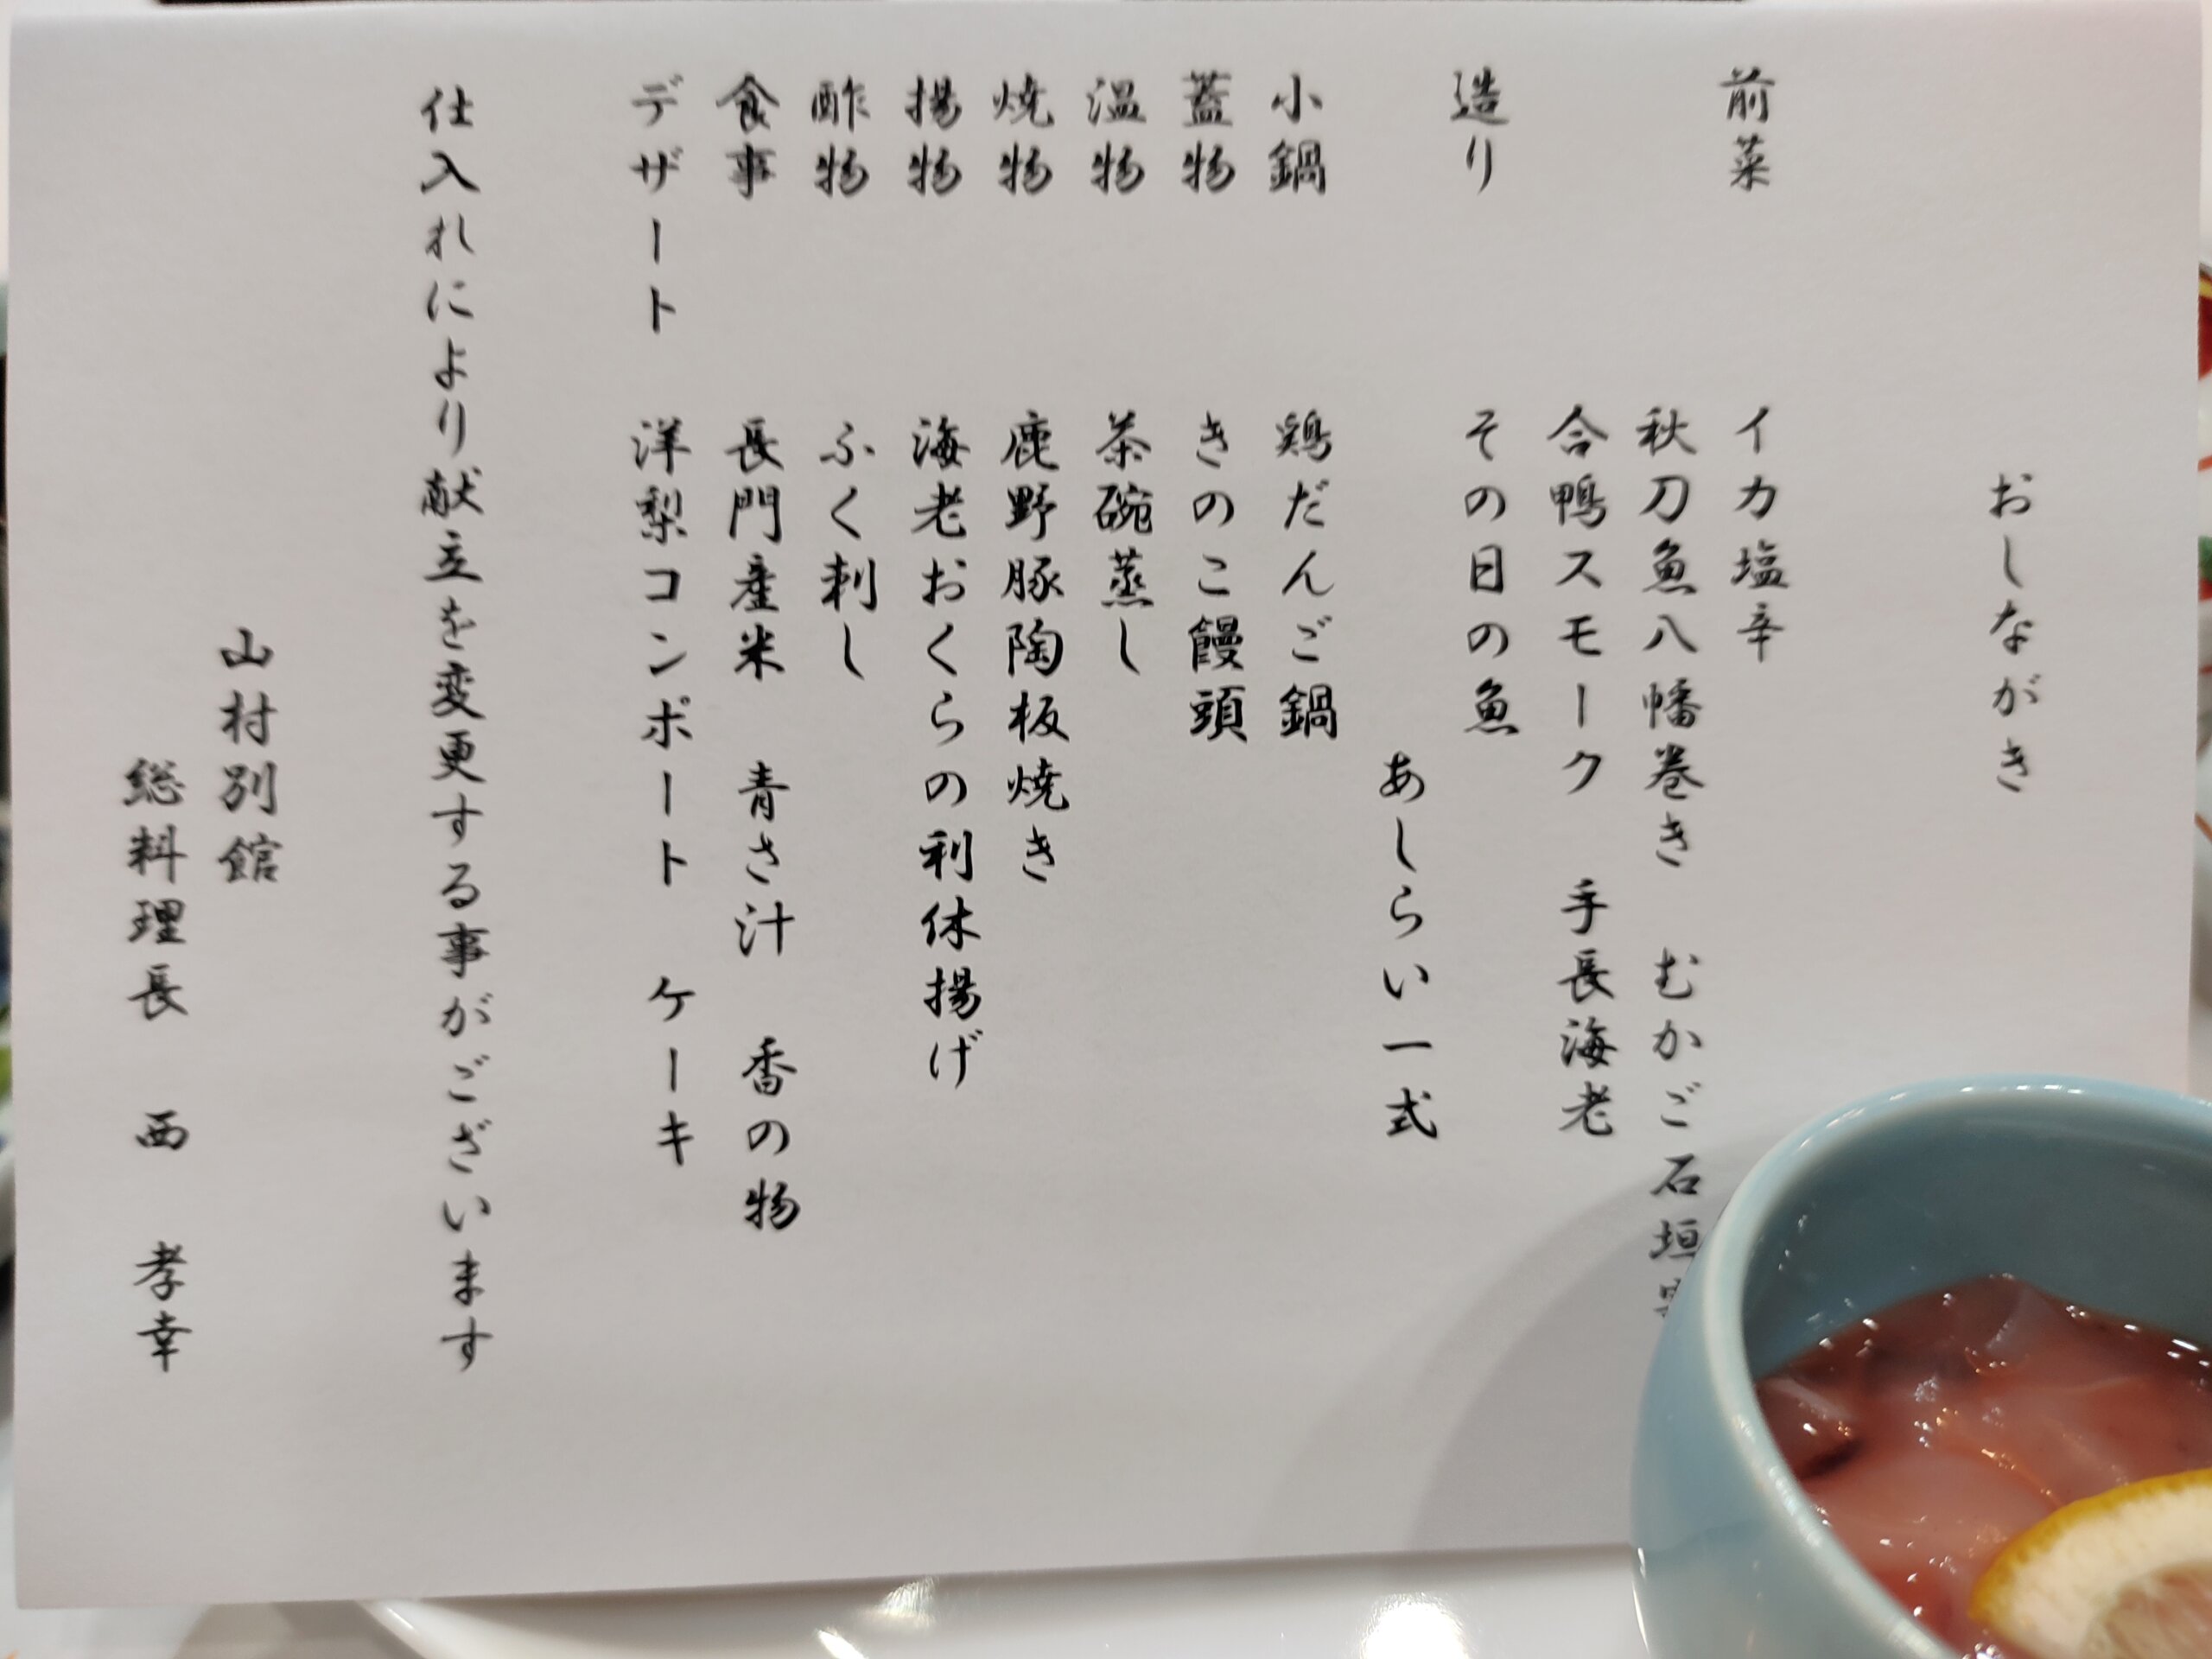 おしながき
前菜　イカ塩辛
秋刀魚八幡巻き　むかご石垣
合鴨スモーク　手長海老
造り　その日の魚
あしらい一式
小鍋　鶏だんご鍋
蓋物　きのこ饅頭
温物　茶碗蒸し
焼物　鹿野豚陶板焼き
揚物　海老おくらの利休揚げ
酢物　ふく刺し
食事　長門産米　青さ汁　香の物
デザート　洋梨コンポート　ケーキ
仕入れにより献立を変更する事がございます
山村別館
総料理長　西　孝幸